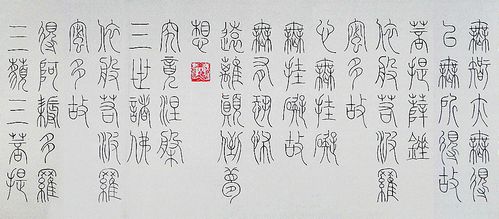 無智亦無得
以無所得故
菩提薩埵
依般若波羅
蜜多故
心無挂礙
無挂礙故
無有恐怖
遠離顛倒夢
想
究竟涅槃
三世諸佛
依般若波羅
蜜多故
得阿耨多羅
三藐三菩提